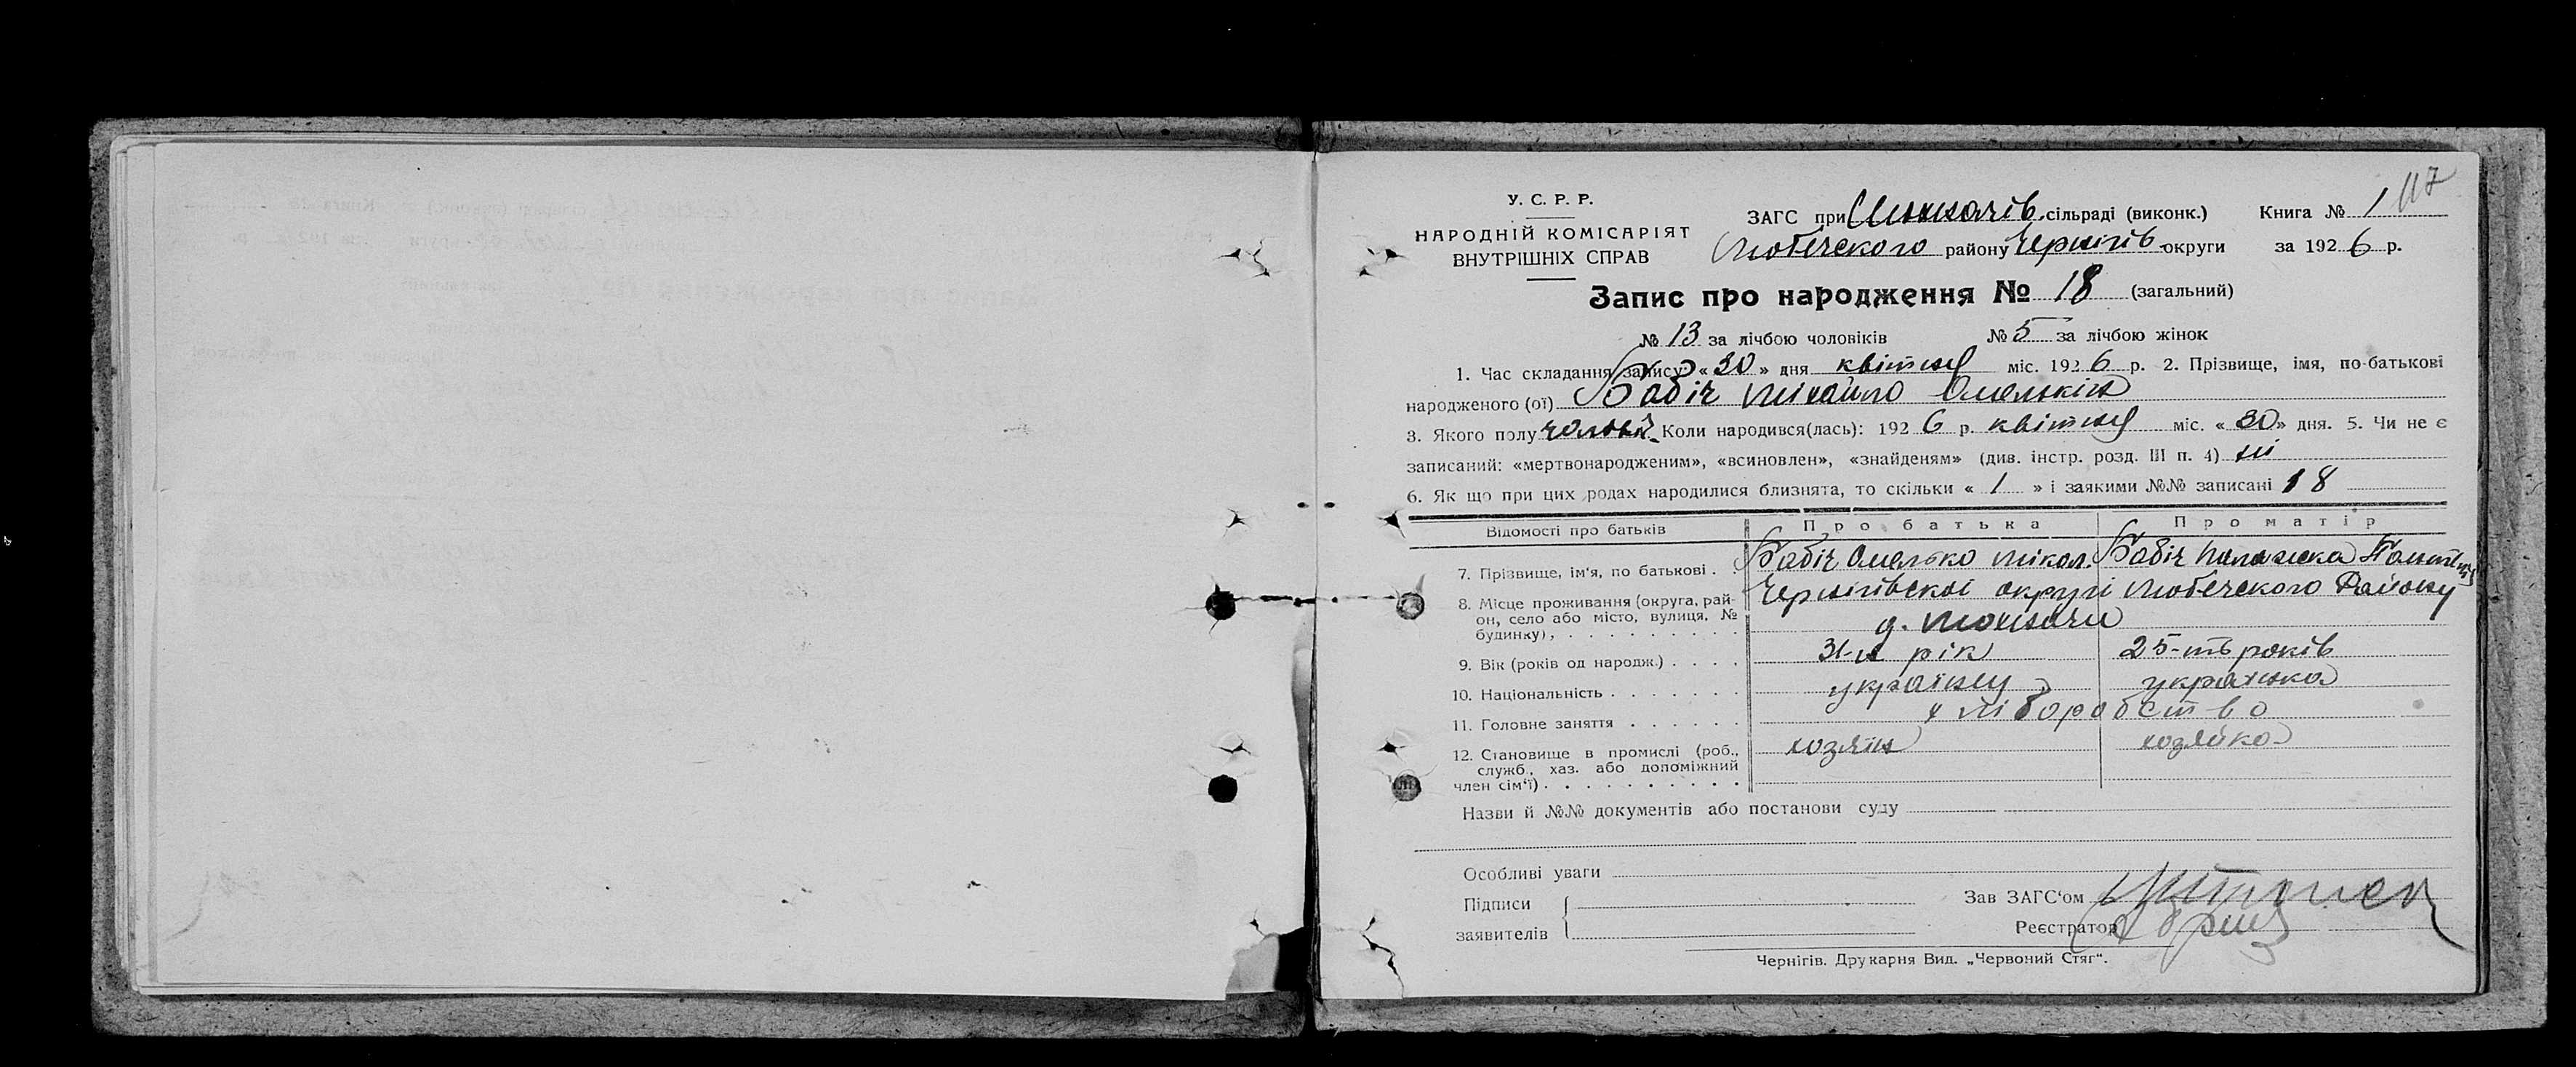 117
У. С. Р. Р.
НАРОДНІЙ КОМІСАРІЯТ
ВНУТРІШНІХ СПРАВ
ЗАГС при сільраді (виконк.) Книга № 1
Любечского району Чернігів- округи за 1926 р.
Запис про народження № 18 (загальний)
№ 13 за лічбою чоловіків № 5 за лічбою жінок
1. Час складання запису: «30» дня квітня міс. 1926 р. 2. Прізвище, імя, по-батькові
народженого (ої) Бабіч Міхайло Омелькін
3. Якого полу чолов. Коли народився(лась): 1926 р. квітня міс. «30» дня. 5. Чи не є
записаний: «мертвонародженим», «всиновлен», «знайденям» (див. інстр. розд. III п. 4) ні
6. Як що при цих родах народилися близнята, то скільки « 1 » і заякими №№ записані 18
Відомості про батьків Про батька Про матір
7. Прізвище, ім'я, по батькові . . Бабіч Омелько Мікол. Бабіч Палажка
8. Місце проживання (округа, рай-
он, село або місто, вулиця, №
будинку), . . . . . . . . . .
Чернігівскоі округі Любечского Району
д. Мохначи
9. Вік (років од народж.) . . . . 31-н рік 25-ть років
10. Національність . . . . . . . українец українка
11. Головне заняття . . . . . . хліборобство
12. Становище в промислі (роб.,
служб., хаз. або допоміжний
член сім'ї) . . . . . . . . . .
хозяїн хозяйка
Назви й №№ документів або постанови суду
Особливі уваги
Підписи
заявителів
Зав ЗАГС'ом
Реєстратор
Чернігів. Друкарня Вид. „Червоний Стяг".